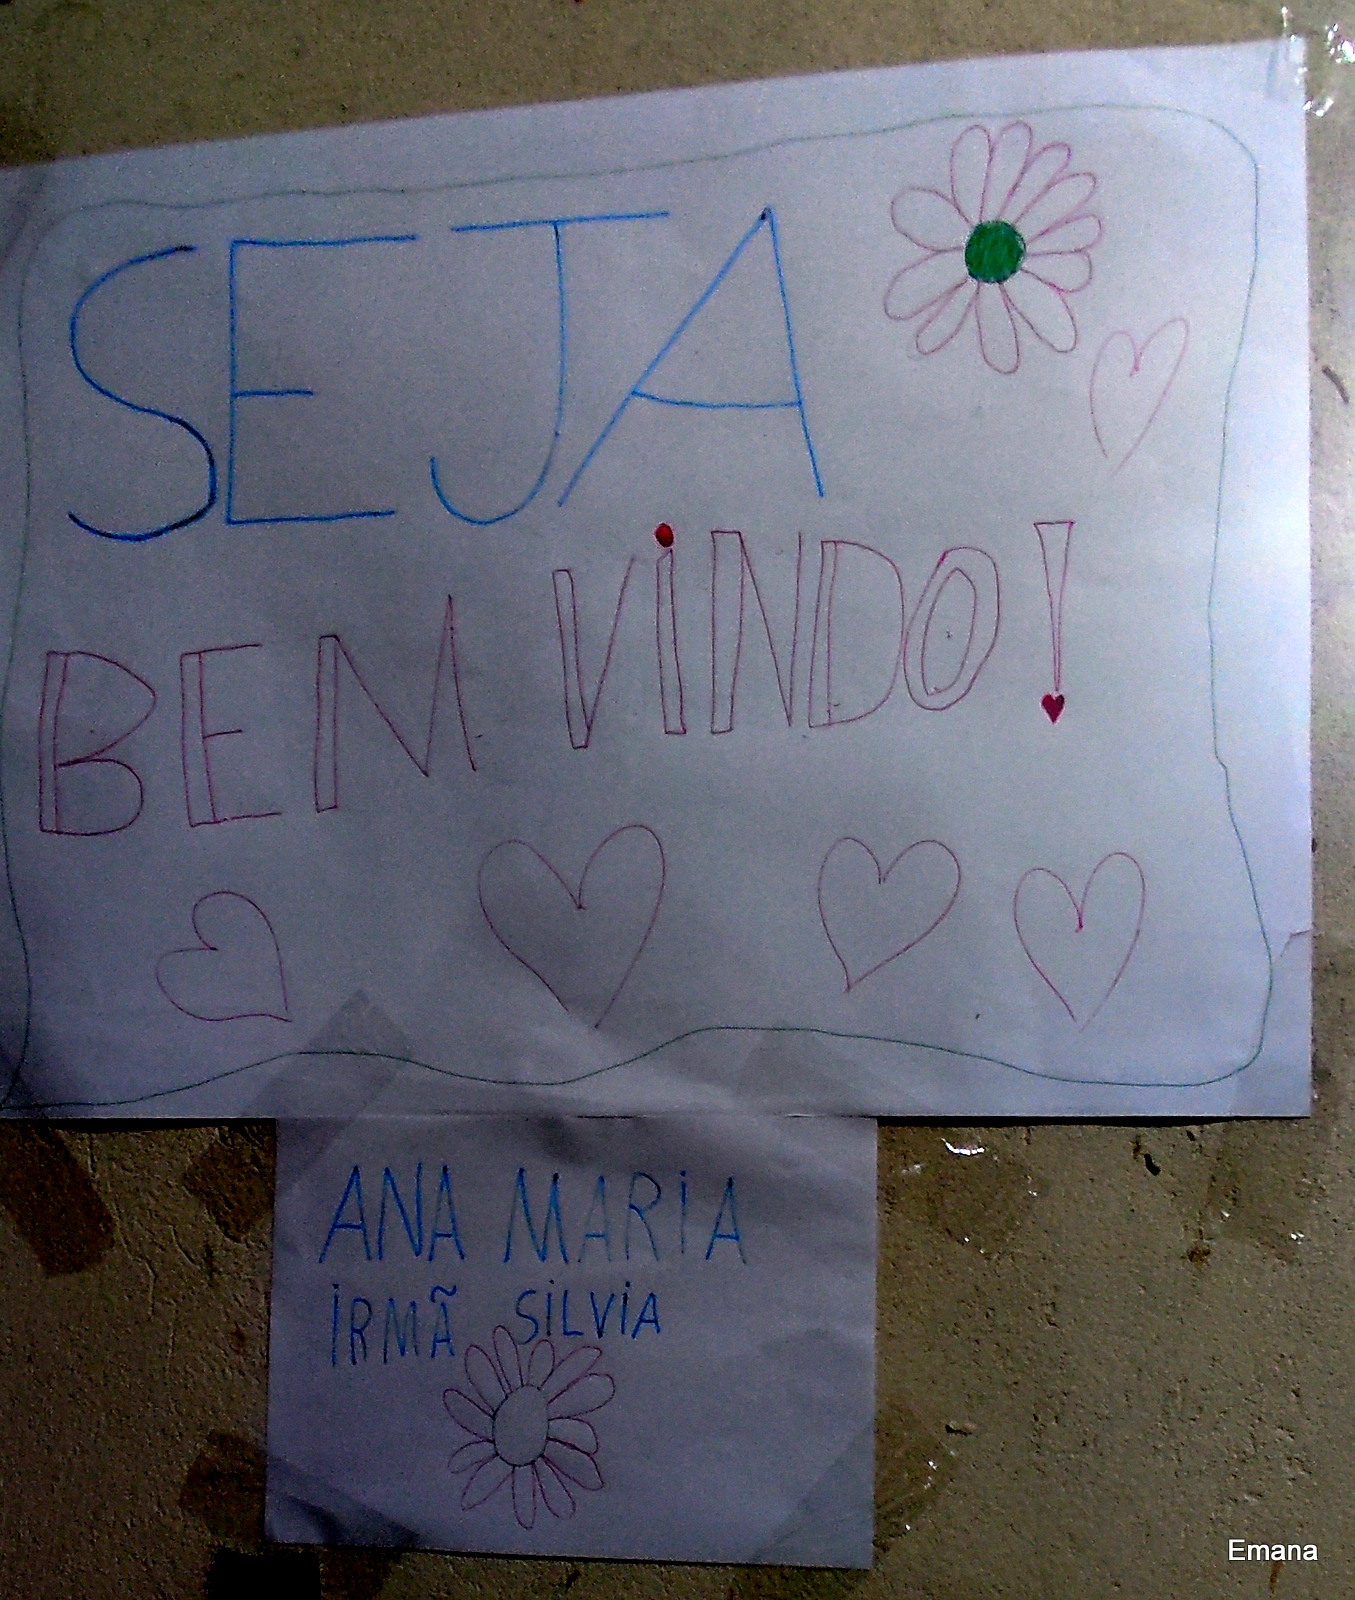 SEJA
BEM VINDO!
ANA MARIA
IRMÃ SILVIA
Emana